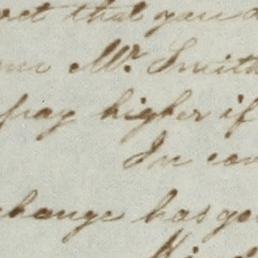 that you
Mr. Smith
pay higher if
In
change has go